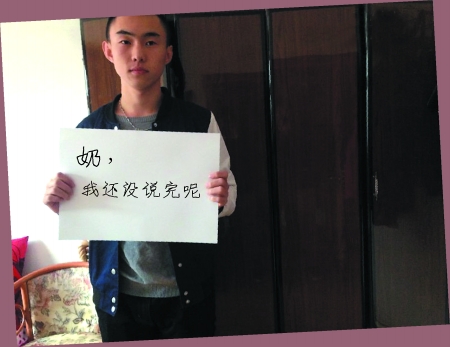 奶，
我还没说完呢